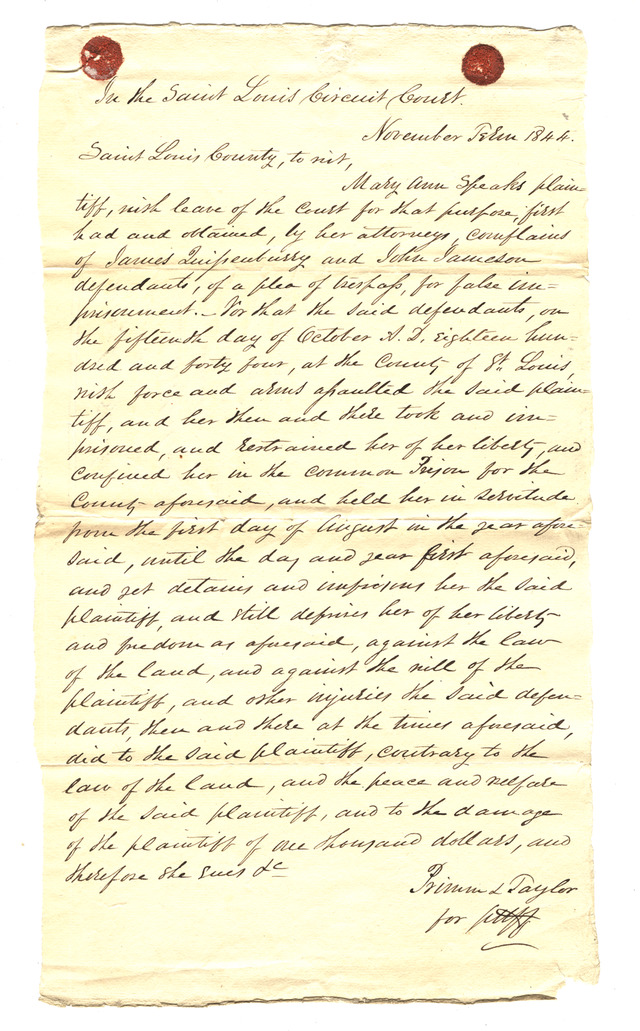 In the Saint Louis Circuit Court.
November Term 1844.
Saint Louis County, to wit,
Mary Ann Speaks plain=
tiff, with leave of the Court for that purpose, first
had and obtained, by her attorneys, complains
of James Quissenburry and John Jameson
defendants, of a plea of trespass, for false im=
prisonment. - For that the said defendants, on
the fifteenth day of October A. D. eighteen hun=
dred and forty four, at the County of St. Louis,
with force and arms assaulted the said plain=
tiff, and her then and there took and im=
prisoned, and restrained her of her liberty, and
confined her in the common Prison for the
County aforesaid, and held her in servitude
from the first day of August in the year afore=
said, until the day and year first aforesaid,
and yet detains and imprisons her the said
plaintiff, and still deprives her of her liberty
and freedom as aforesaid, against the law
of the land, and against the will of the
plaintiff, and other injuries the said defen=
dants, then and there at the times aforesaid,
did to the said plaintiff, contrary to the
law of the land, and the peace and welfare
of the said plaintiff, and to the damage
of the plaintiff of one thousand dollars, and
therefore she sues &c
Primm & Taylor
for plff